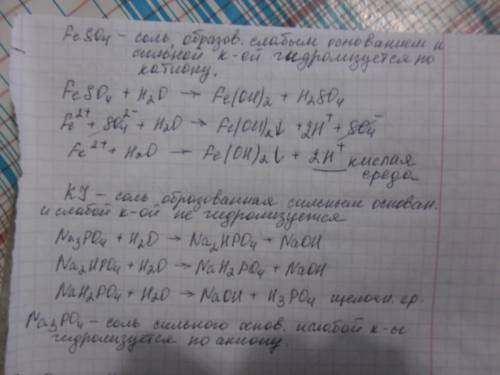 FeSO4 - соль, образов. слабым основанием и
сильной к-ой гидролизуется по
катиону.
FeSO4 + H2O → Fe(OH)2 + H2SO4
Fe²⁺ + SO4²⁻ + H2O → Fe(OH)2↓ + 2H⁺ + SO4⁻
Fe²⁺ + H2O → Fe(OH)2↓ + 2H⁺ кислая
среда
KJ - соль образованная сильным основан.
и слабой к-ой не гидролизуется
Na3PO4 + H2O → Na2HPO4 + NaOH
Na2HPO4 + H2O → NaH2PO4 + NaOH
NaH2PO4 + H2O → NaOH + H3PO4 щелочн. ср.
Na3PO4 - соль сильного основ. и слабой к-ы
гидролизуется по аниону.